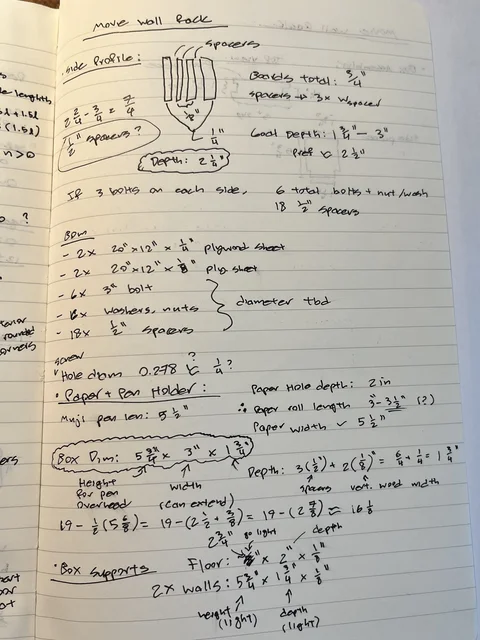 Move Wall Rack
Side Profile:
spacers
1/8"
1/4"
Depth: 2 1/4"
2 2/4 - 3/4 = 7/4
1/2" spacers?
Boards total: 3/4"
spacers → 3x w spaced
Goal Depth: 1 3/4" - 3"
Pref ~ 2 1/2"
If 3 bolts on each side, 6 total bolts + nut/wash
18 1/2" spacers
BOM
- 2x 20" x 12" x 1/4" plywood sheet
- 2x 20" x 12" x 1/8" ply sheet
- 6x 3" bolt
- 6x washers, nuts
- 18x 1/2" spacers
diameter tbd
screw
Hole diam 0.278 ? 1/4?
• Paper + Pen Holder:
Muji pen len: 5 1/2"
Paper Hole depth: 2in
∴ Paper roll length 3" - 3 1/2" (?)
Paper width ~ 5 1/2"
Box Dim: 5 3/4" x 3" x 1 3/4"
Height for pen overhead
width (can extend)
Depth: 3(1/2") + 2(1/8") = 6/4 + 1/4 = 1 3/4"
spacers
vert. wood width
19 - 1/2(5 6/8) = 19 - (2 1/2 + 3/8) = 19 - (2 7/8) ≈ 16 1/8
• Box supports
2 3/4" go light
depth
Floor: x 2" x 1/8"
2x walls: 5 3/4" x 1 3/4" x 1/8"
height (light)
depth (light)